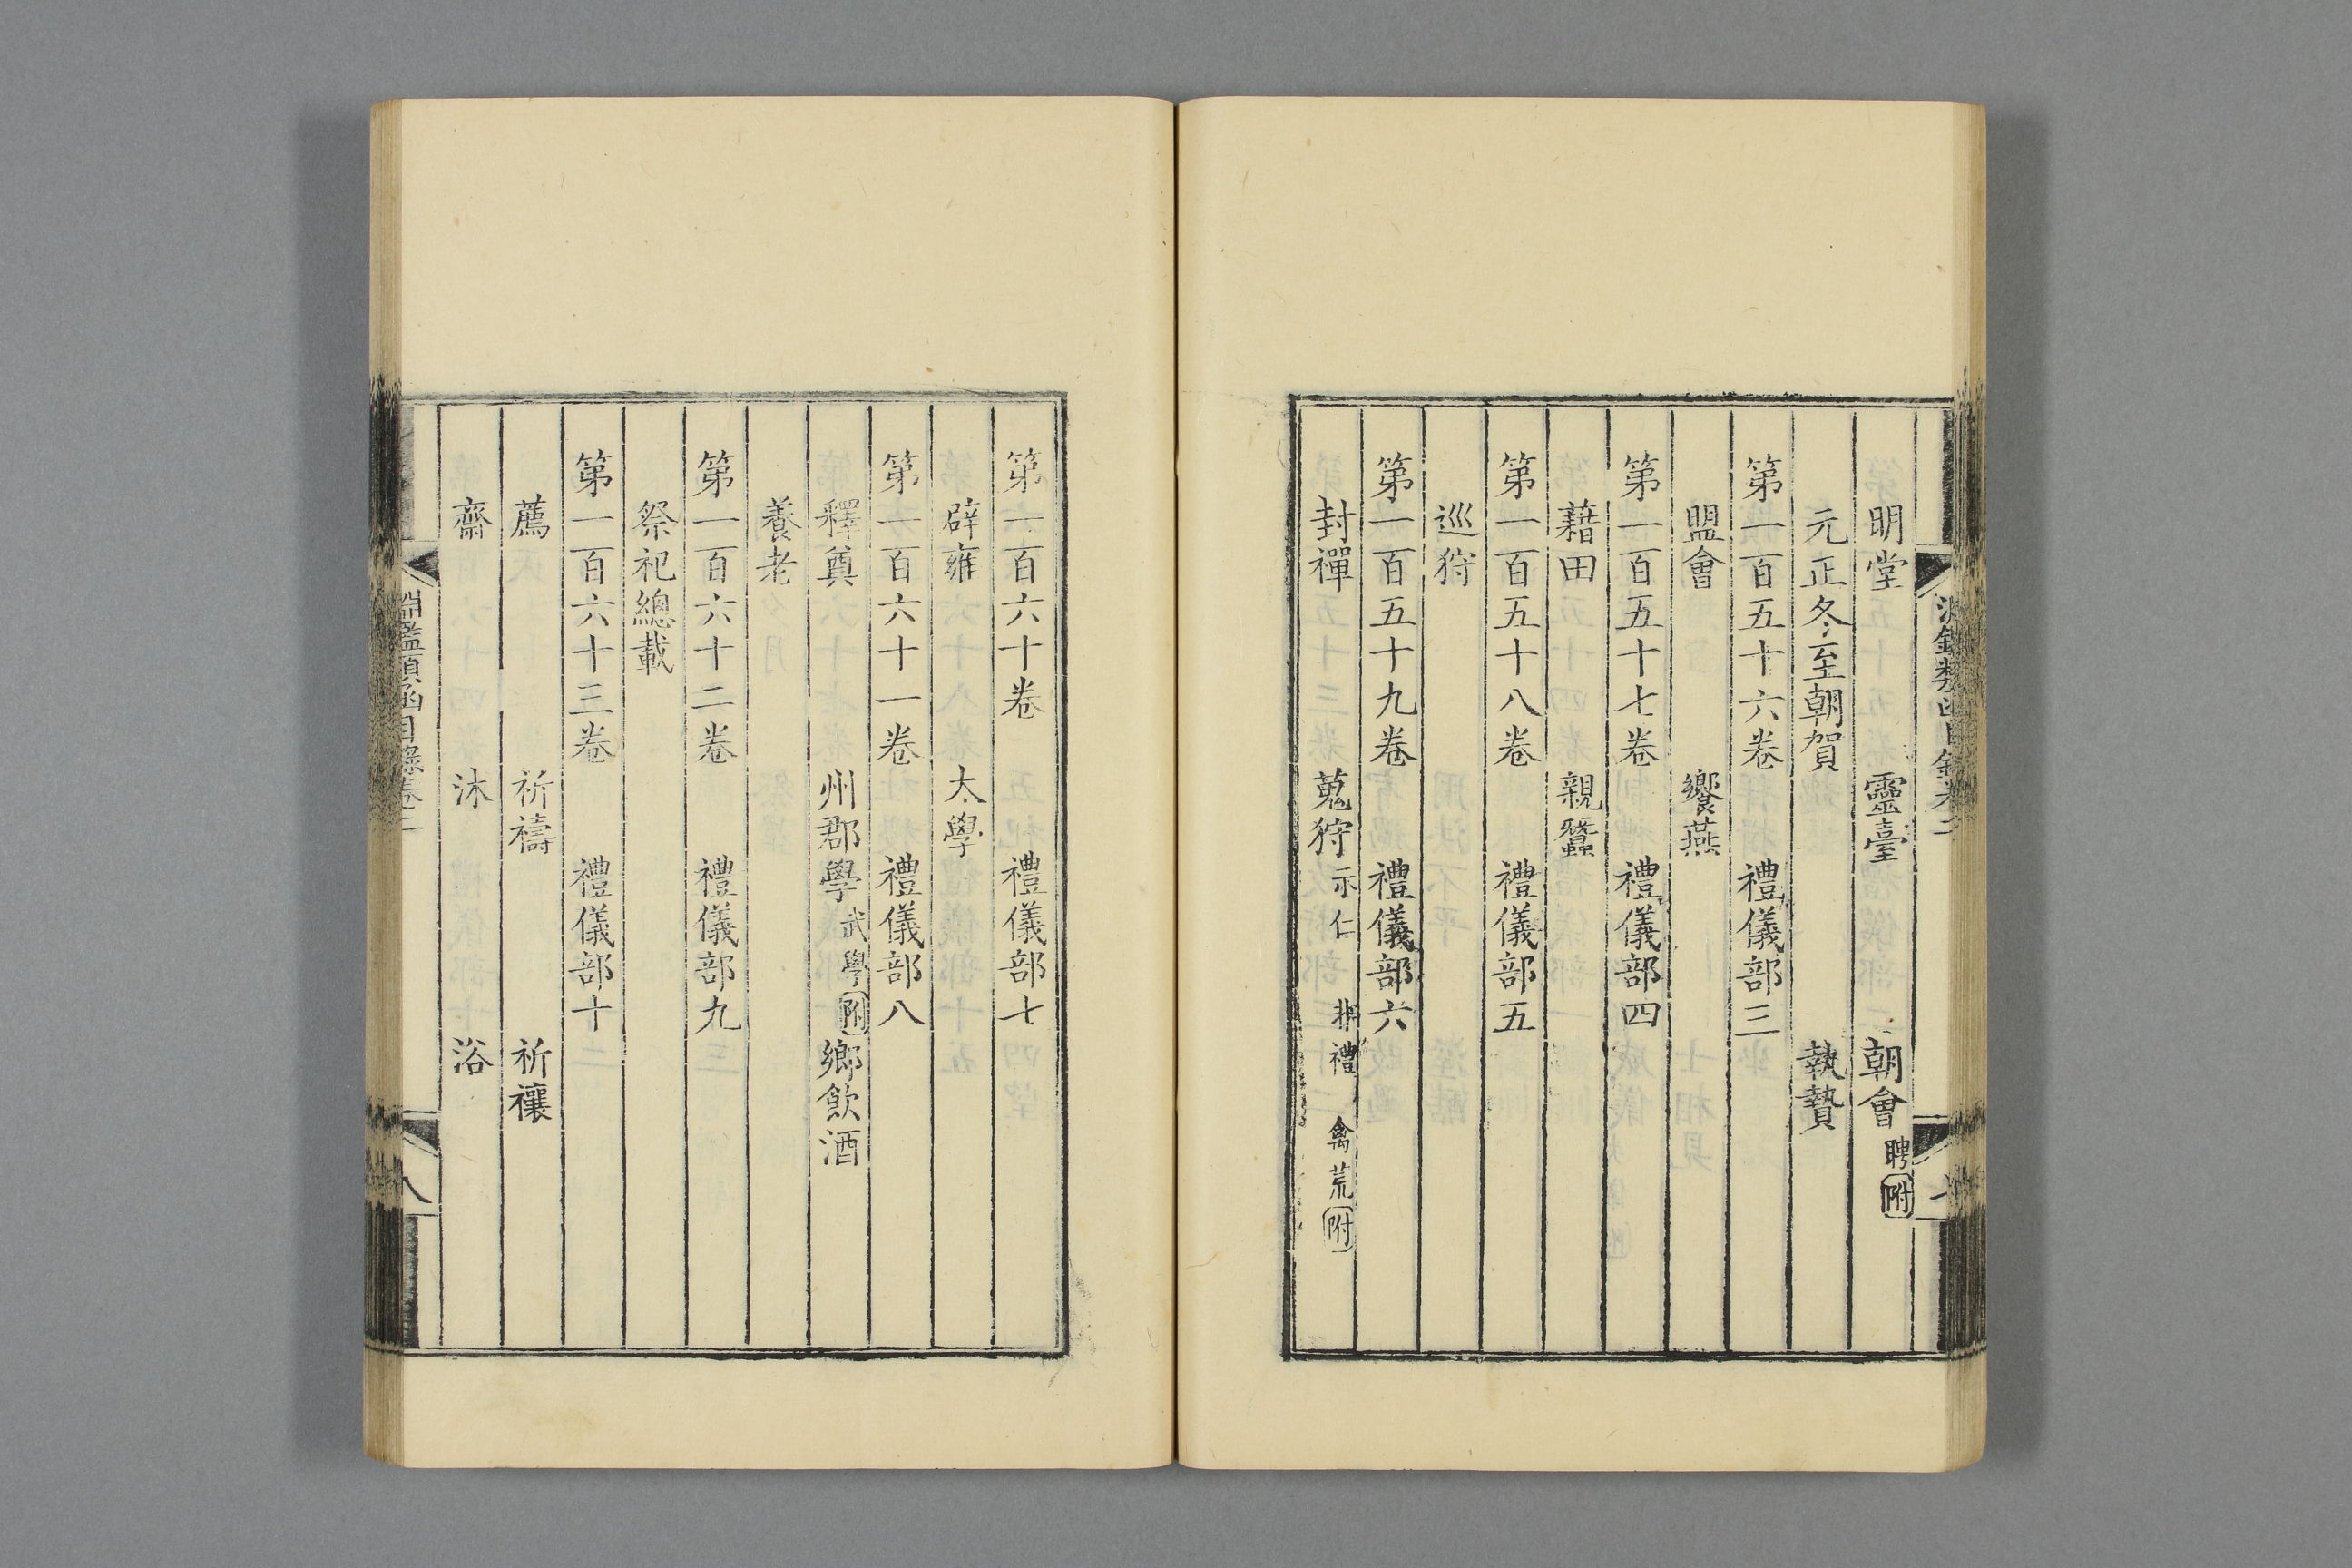 明堂 靈臺 朝會 聘附
元正冬至朝賀 執贄
第一百五十六卷 禮儀部三
盟會 饗燕
第一百五十七卷 禮儀部四
藉田 親蠶
第一百五十八卷 禮儀部五
巡狩
第一百五十九卷 禮儀部六
封禪 蒐狩 示仁 非禮 禽荒附
第一百六十卷 禮儀部七
辟雍 太學
第一百六十一卷 禮儀部八
釋奠 州郡學 武學附 鄉飲酒
養老
第一百六十二卷 禮儀部九
祭祀總載
第一百六十三卷 禮儀部十
薦 祈禱 祈禳
齋 沐 浴
淵鑑類函目錄卷二 八